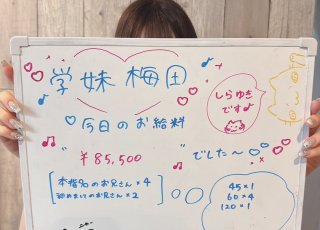 学妹梅田
しらゆき
です♪
今日のお給料
¥85,500
でした～
本指名のお兄さん×4
初めましてのお兄さん×2
45×1
60×4
120×1